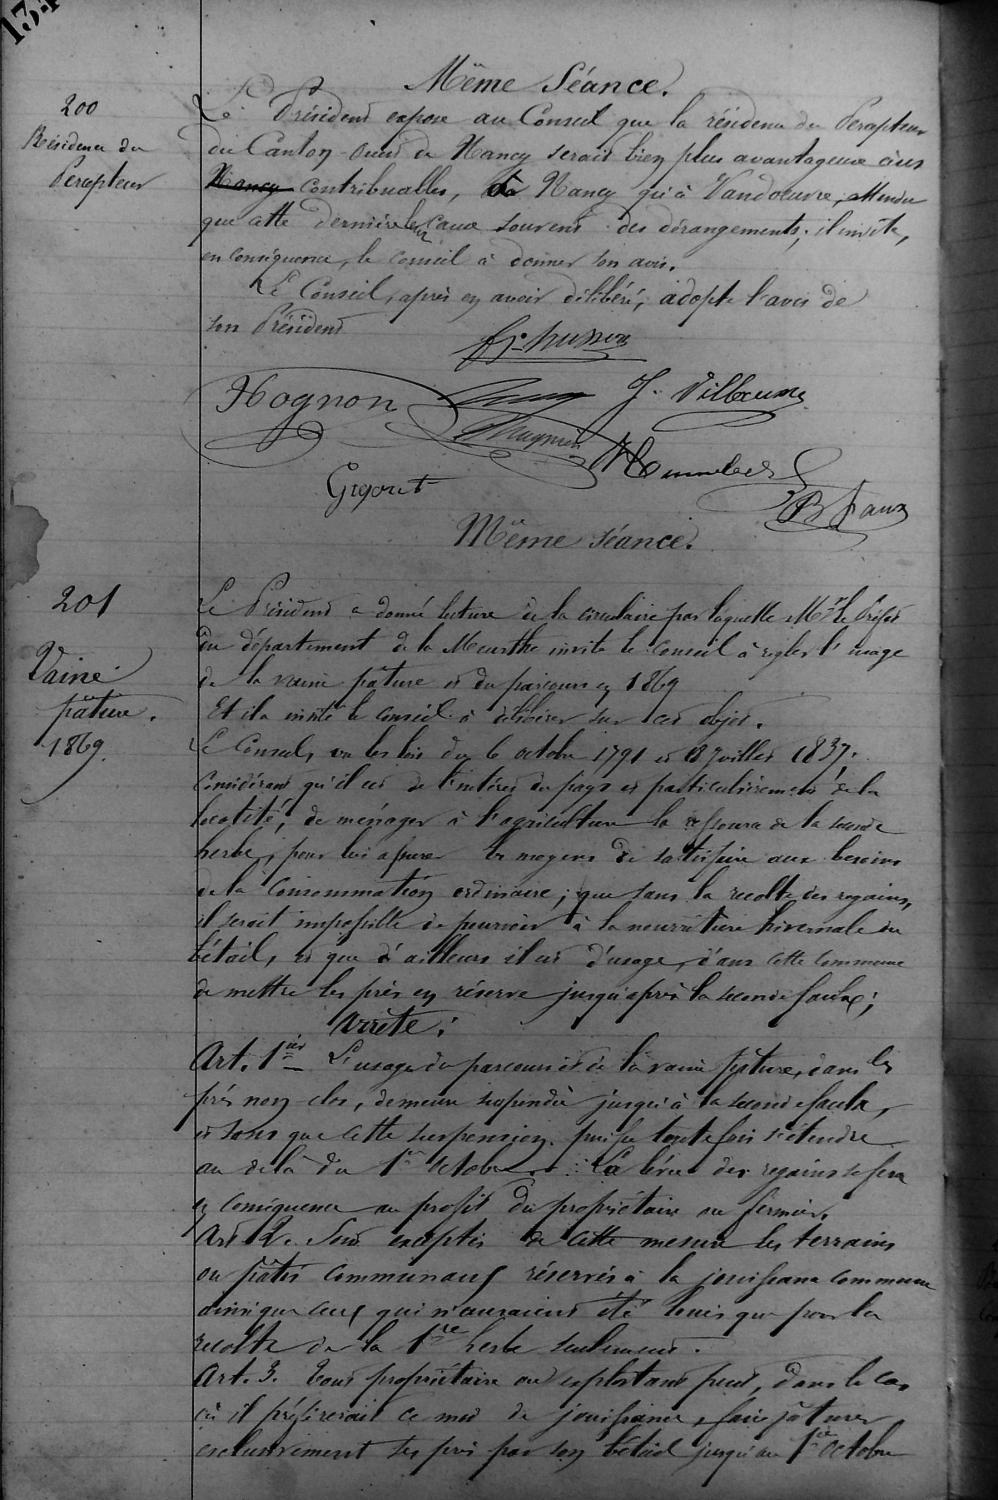 Même Séance.
200
Résidence du
Percepteur
Le Président expose au Conseil que la résidence du Percepteur
du Canton Ouest de Nancy serait bien plus avantageuse aux
Nancy contribuables, à Nancy qu'à Vandoeuvre, attendu
que cette dernière leur cause souvent des dérangements; il invite,
en conséquence, le conseil à donner son avis.
Le Conseil, après en avoir délibéré, adopte l'avis de
son Président
husson
Hognon
J. Villaume
Grgoret
B Faux
Même séance.
201
Vaine
pâture.
1869.
Le Président a donné lecture de la circulaire par laquelle Mr le Préfet
du département de la Meurthe invite le Conseil à régler l'usage
de la vaine pâture et du parcours en 1869
Et il a invité le conseil à délibérer sur cet objet.
Le Conseil, vu les lois du 6 octobre 1791 et 18 Juillet 1837;
Considérant qu'il est de l'intérêt du pays et particulièrement de la
localité, de ménager à l'agriculture la ressource de la seconde
herbe, pour lui assurer les moyens de satisfaire aux besoins
de la Consommation ordinaire; que sans la recolte des regains,
il serait impossible de pourvoir à la nourriture hivernale du
bétail, et que d'ailleurs il est d'usage, dans cette commune
de mettre les prés en réserve jusqu'après la seconde faulx;
Arrête:
Art. 1er L'usage du parcours et de la vaine pâture, dans les
prés non clos, demeure suspendu jusqu'à la seconde faulx,
et sans que cette suspension puisse toutefois s'étendre
au delà du 1er octobre. La levée des regains se fera
en conséquence au profit du propriétaire ou fermier.
Art 2. Sont exceptés de cette mesure les terrains
ou pâtis communaux réservés à la jouissance commune
ainsi que ceux qui n'auraient été loués que pour la
recolte de la 1re herbe seulement.
Art. 3. Tout propriétaire ou exploitant peut, dans le cas
où il préfèrerait ce mode de jouissance, faire pâturer
exclusivement ses prés par son bétail jusqu'au 1er Octobre